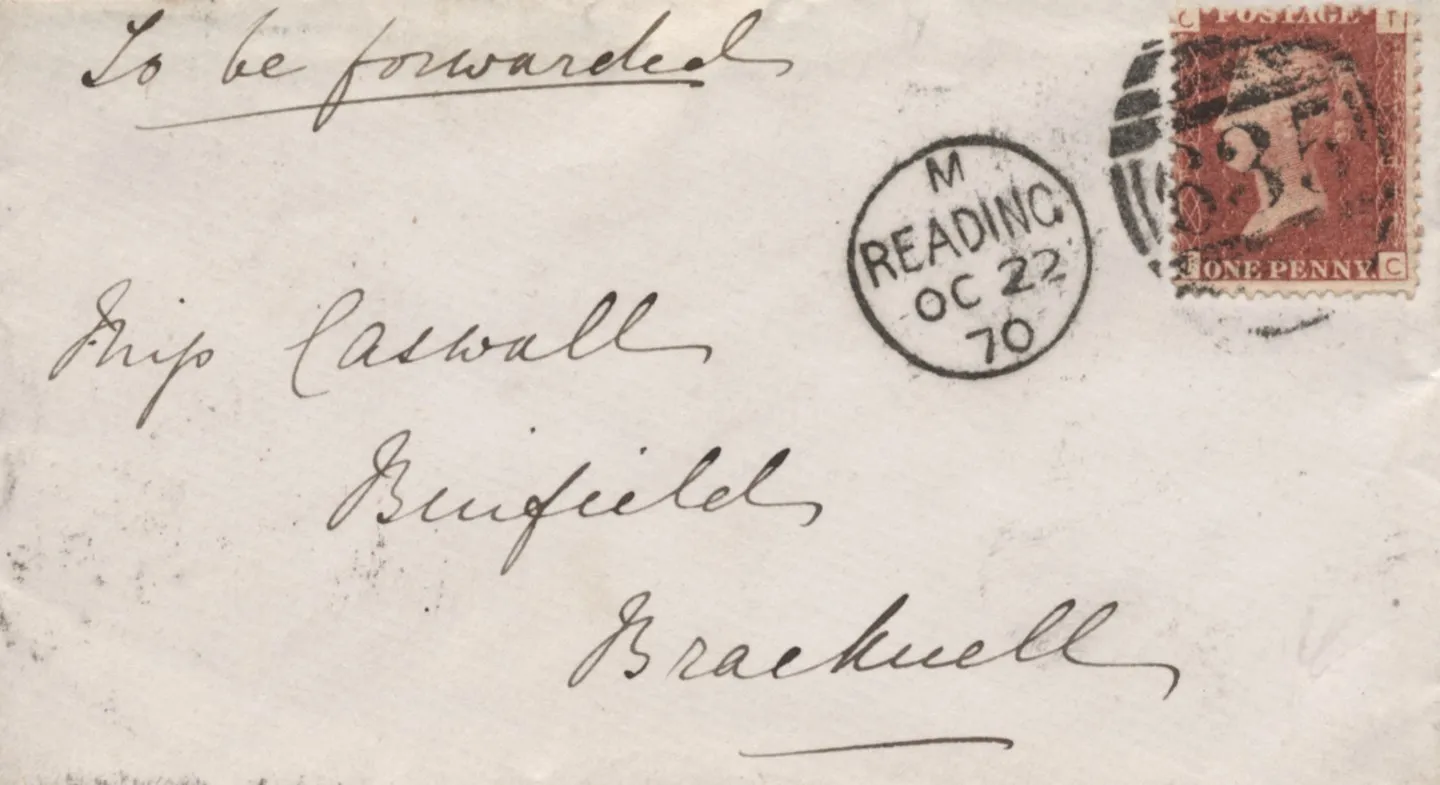 To be forwarded
C POSTAGE T
M
READING
OC 22
70
635
ONE PENNY C
Miss Caswall
Binfield
Bracknell